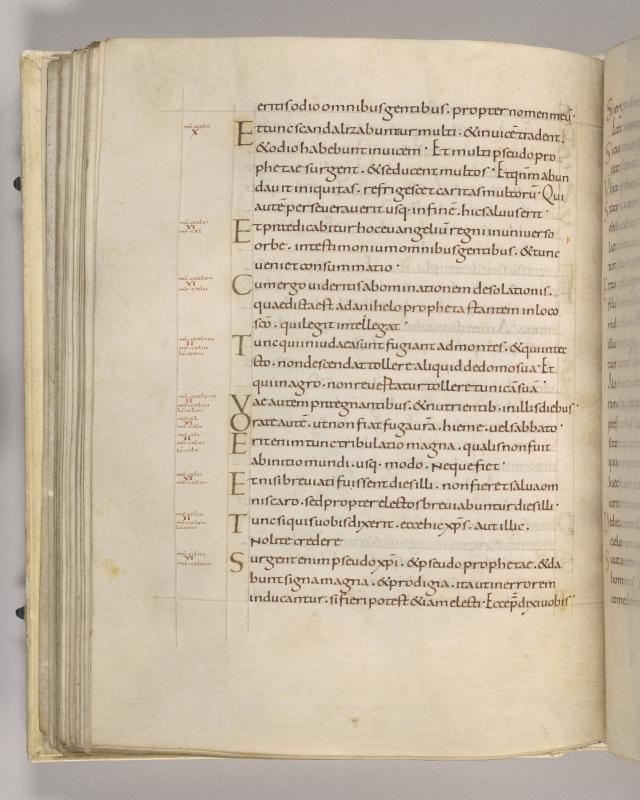 eritis odio omnibus gentibus. propter nomen meū.
Et tunc scandalizabuntur multi. & inuicē tradent.
& odio habebunt inuicem. Et multi pseudo pro
phetae surgent. & seducent multos. Et qnm abun
dauit iniquitas. refrigescet caritas multorū. Qui
autē perseuerauerit usq. in finē. hic saluus erit.
Et praedicabitur hoc euangeliū regni in uniuerso
orbe. in testimonium omnibus gentibus. & tunc
ueniet consummatio.
Cum ergo uideritis abominationem desolationis.
quae dicta est a danihelo propheta stantem in loco
scō. qui legit intellegat.
Tunc qui in iudaea sunt fugiant ad montes. & qui in tec
to. non descendat tollere aliquid de domo sua. Et
qui in agro. non reuertatur tollere tunicā suā.
Vae autem praegnantibus. & nutrientib. in illis diebus.
Orate autē. ut non fiat fuga ur̄a. hieme. uel sabbato.
Erit enim tunc tribulatio magna. qualis non fuit
ab initio mundi. usq. modo. Neque fiet.
Et nisi breuiati fuissent dies illi. non fieret salua om
nis caro. sed propter electos breuiabuntur dies illi.
Tunc si quis uobis dixerit. ecce hic xp̄s. aut illic.
Nolite credere
Surgent enim pseudo xp̄i. & pseudo prophetae. & da
bunt signa magna. & prodigia. ita ut in errorem
inducantur. si fieri potest & iam electi. Ecce p̄dixi uobis